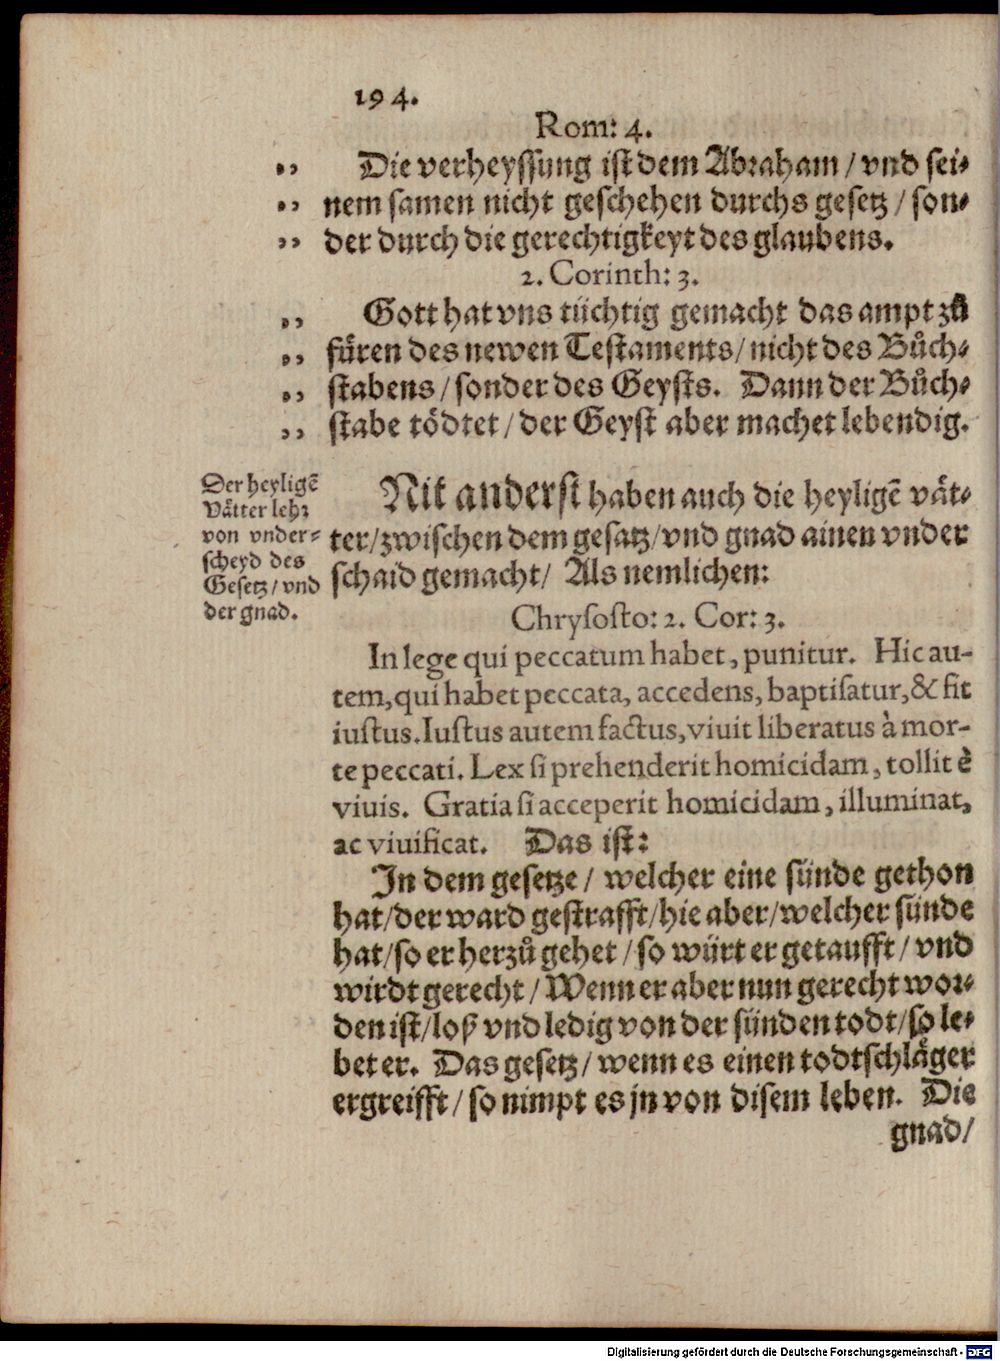 194.
Rom: 4.
„ Die verheyssung ist dem Abraham / vnd sei⸗
„ nem samen nicht geschehen durchs gesetz / son⸗
„ der durch die gerechtigkeyt des glaubens.
2. Corinth: 3.
„ Gott hat vns tüchtig gemacht das ampt zů
„ füren des newen Testaments / nicht des Bůch⸗
„ stabens / sonder des Geysts. Dann der Bůch⸗
„ stabe tödtet / der Geyst aber machet lebendig.
Der heyligẽ
Vätter lehr
von vnder⸗
scheyd des
Gesetz / vnd
der gnad.
Nit anderst haben auch die heyligẽ vät⸗
ter / zwischen dem gesatz / vnd gnad ainen vnder
schaid gemacht / Als nemlichen:
Chrysosto: 2. Cor: 3.
In lege qui peccatum habet, punitur. Hic au-
tem, qui habet peccata, accedens, baptisatur, & fit
iustus. Iustus autem factus, viuit liberatus à mor-
te peccati. Lex si prehenderit homicidam, tollit è
viuis. Gratia si acceperit homicidam, illuminat,
ac viuificat. Das ist:
In dem gesetze / welcher eine sünde gethon
hat / der ward gestrafft / hie aber / welcher sünde
hat / so er herzů gehet / so würt er getaufft / vnd
wirdt gerecht / Wenn er aber nun gerecht wor⸗
den ist / loß vnd ledig von der sünden todt / so le⸗
bet er. Das gesetz / wenn es einen todtschläger
ergreifft / so nimpt es jn von disem leben. Die
gnad /
Digitalisierung gefördert durch die Deutsche Forschungsgemeinschaft - DFG